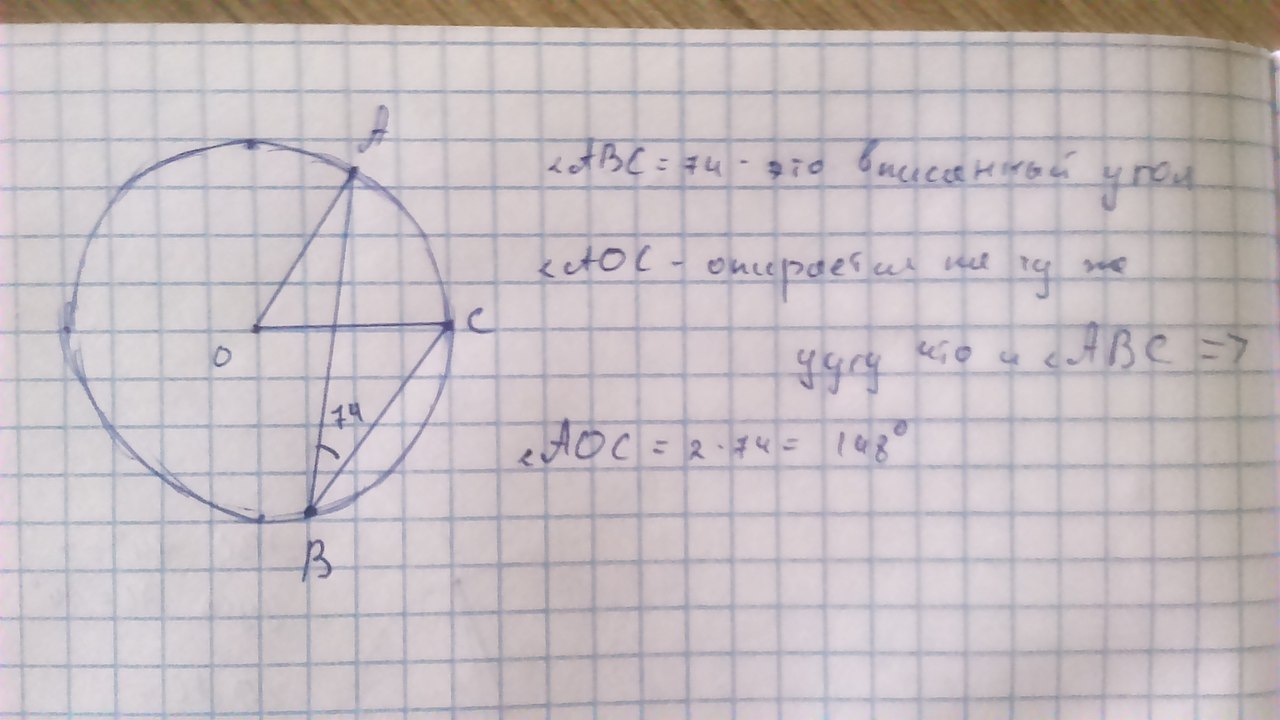 A
<ABC = 74 - это вписанный угол
<AOC - опирается на ту же
O
C
дугу что и <ABC =>
74
<AOC = 2 · 74 = 148°
B